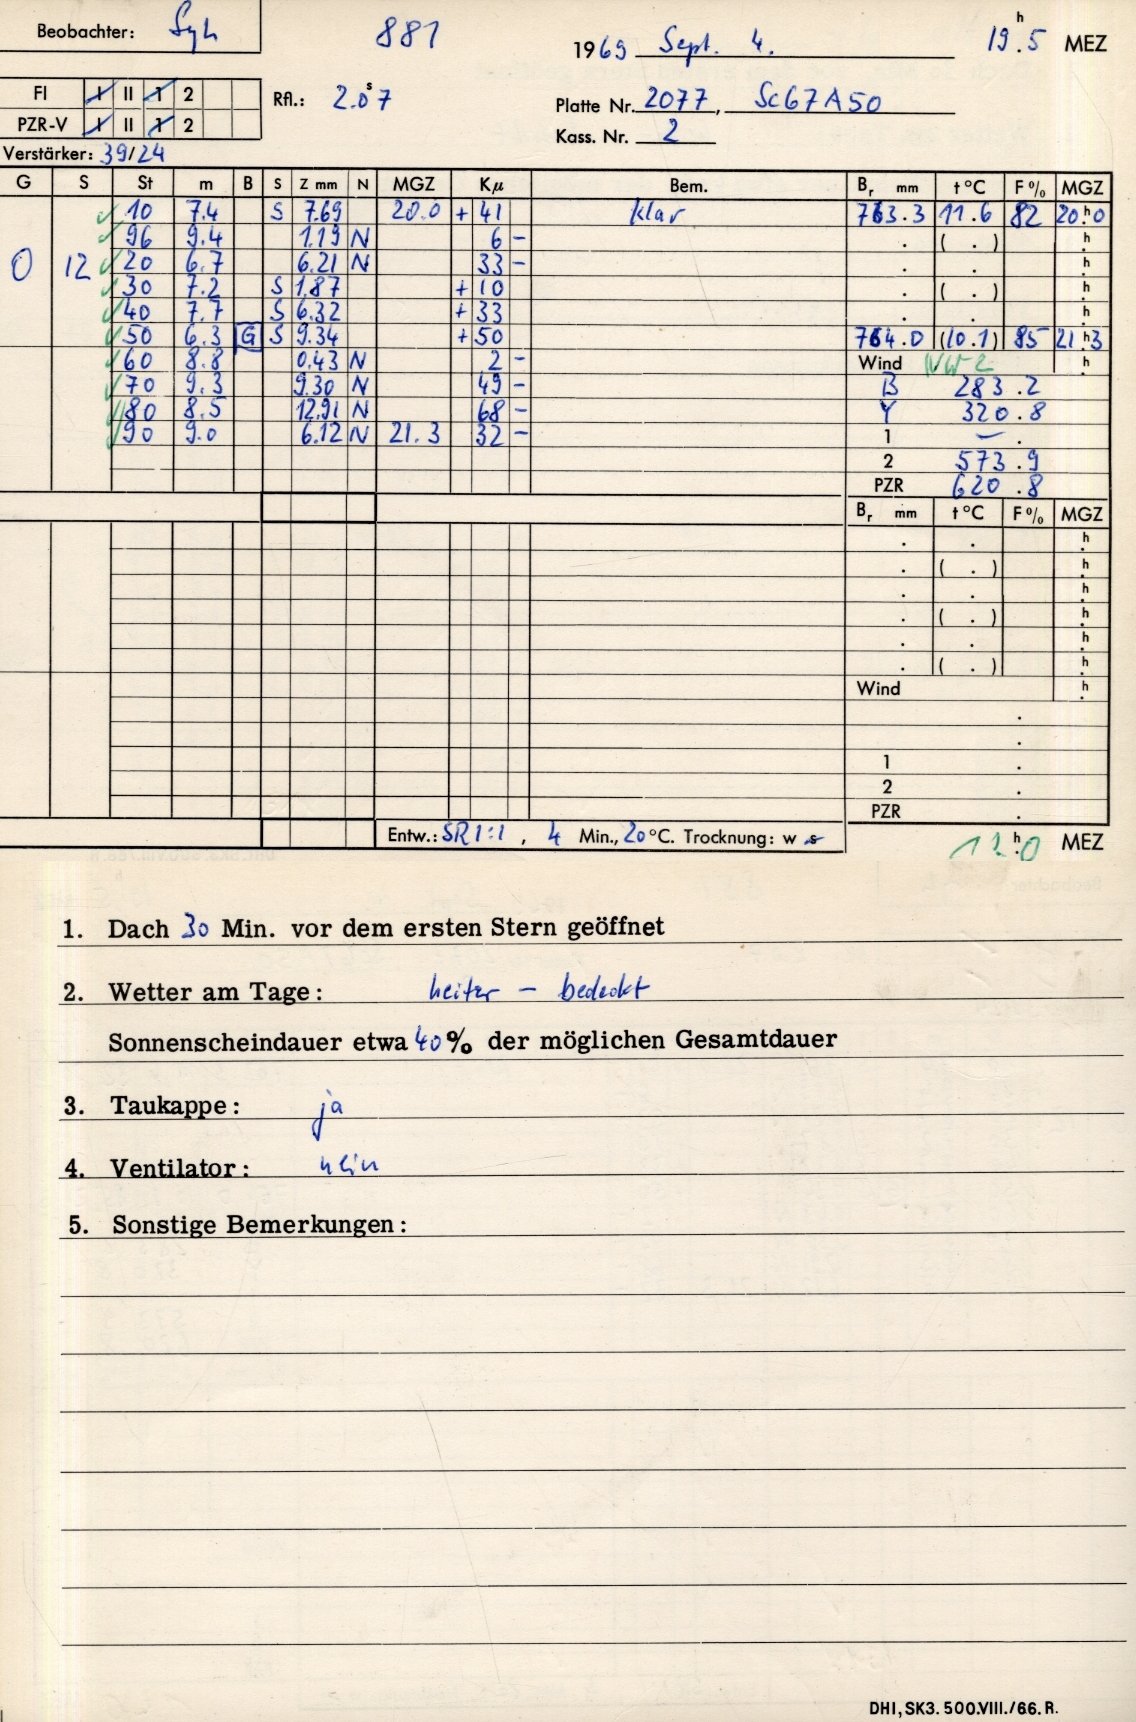 Beobachter: Syh 881 1969 Sept. 4. 19h.5 MEZ
FI I II 1 2 Rfl.: 2.s07 Platte Nr. 2077, Sc67A50
PZR-V I II 1 2 Kass. Nr. 2
Verstärker: 39/24
G S St m B S Z mm N MGZ Kμ Bem. Br mm t°C F% MGZ
10 7.4 S 7.69 20.0 + 41 klar 763.3 11.6 82 20h.0
96 9.4 1.19 N 6 - . ( . ) h.
0 12 20 6.7 6.21 N 33 - . . h.
30 7.2 S 1.87 + 10 . ( . ) h.
40 7.7 S 6.32 + 33 . . h.
50 6.3 G S 9.34 + 50 764.0 (10.1) 85 21h.3
60 8.8 0.43 N 2 - Wind NW 2 h.
70 9.3 9.30 N 49 - B 283.2
80 8.5 12.91 N 68 - Y 320.8
90 9.0 6.12 N 21.3 32 - 1 – .
2 573.9
PZR 620.8
Br mm t°C F% MGZ
. . h.
. ( . ) h.
. . h.
. ( . ) h.
. . h.
. ( . ) h.
Wind h.
.
.
1 .
2 .
PZR .
Entw.: SR 1:1, 4 Min., 20°C. Trocknung: w s h.0 MEZ
1. Dach 30 Min. vor dem ersten Stern geöffnet
2. Wetter am Tage: heiter – bedeckt
Sonnenscheindauer etwa 40% der möglichen Gesamtdauer
3. Taukappe: ja
4. Ventilator: nein
5. Sonstige Bemerkungen:
DHI, SK3. 500.VIII./66. R.